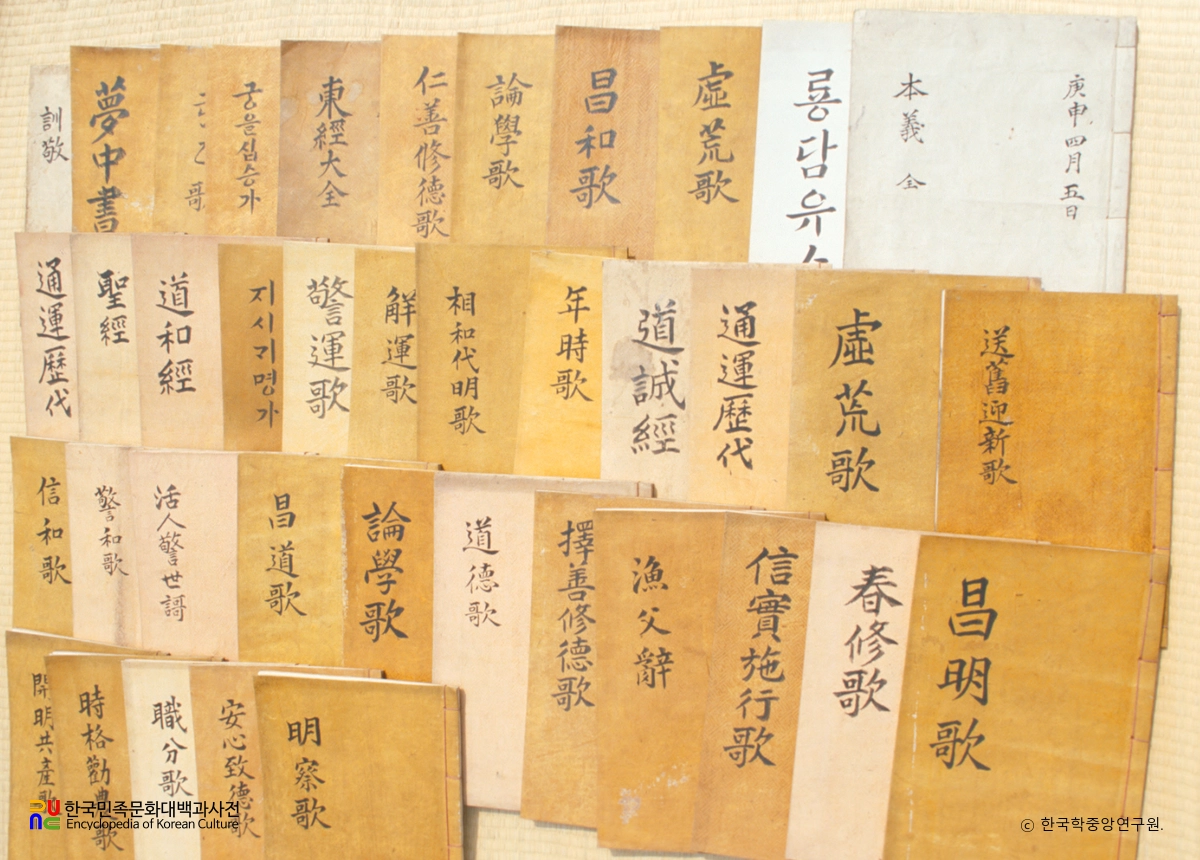 訓敬
夢中書
歌
궁을십승가
東經大全
仁善修德歌
論學歌
昌和歌
虛荒歌
룡담유
本義 全
庚申四月五日
通運歷代
聖經
道和經
지시기명가
警運歌
解運歌
相和代明歌
年時歌
道誠經
通運歷代
虛荒歌
送舊迎新歌
信和歌
警和歌
活人警世謌
昌道歌
論學歌
道德歌
擇善修德歌
漁父辭
信實施行歌
春修歌
昌明歌
開明共產歌
時格勸農歌
職分歌
安心致德歌
明察歌
한국민족문화대백과사전
Encyclopedia of Korean Culture
© 한국학중앙연구원.